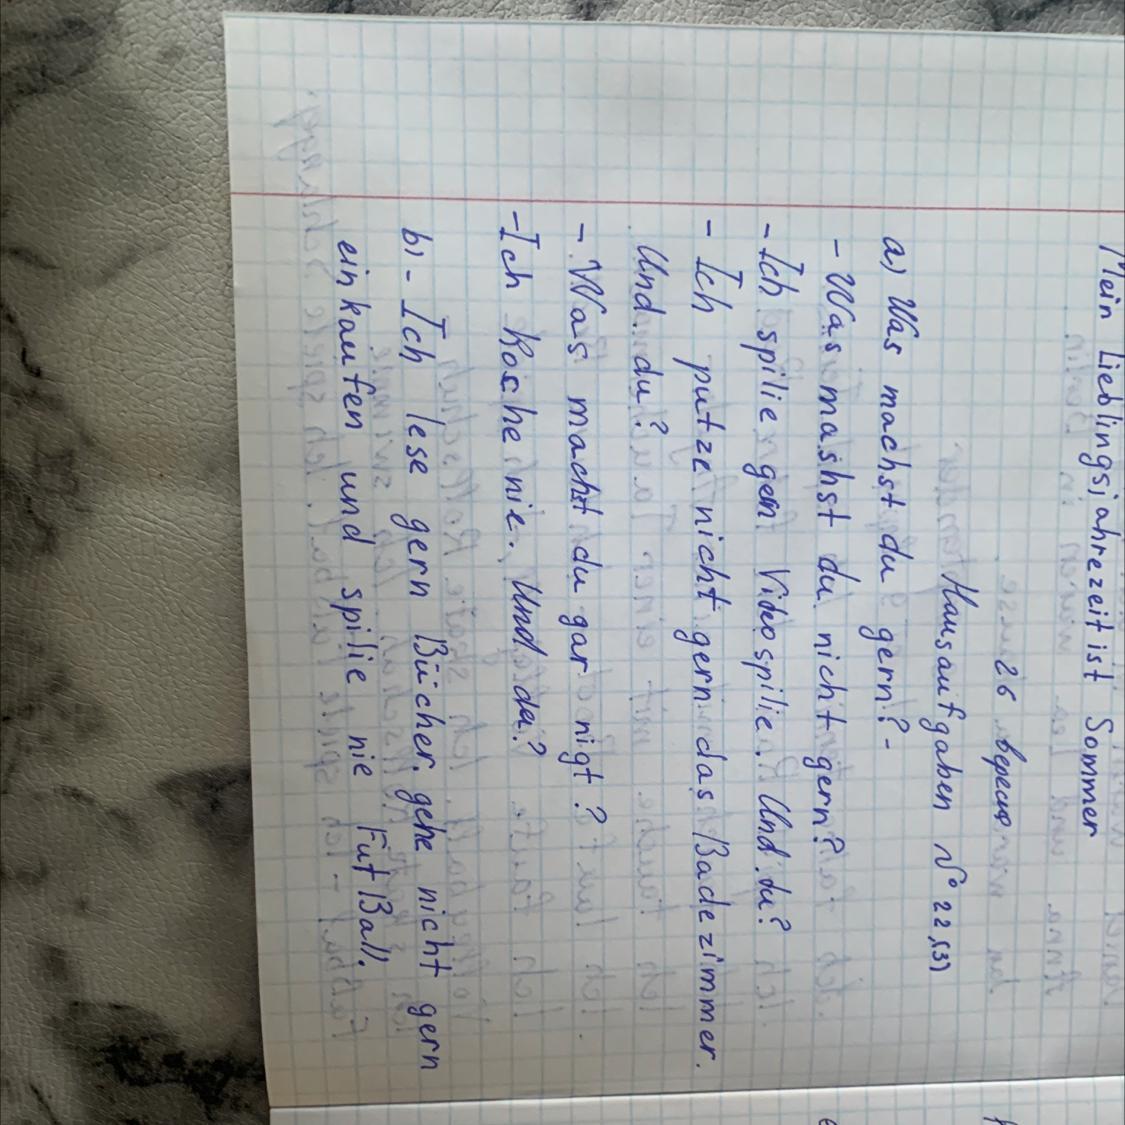 Mein Lieblingsjahrezeit ist Sommer
26 вересня
Hausaufgaben № 22,(3)
a) Was machst du gern?-
- Was mashst du nicht gern?
- Ich spilie gern Videospilie. Und du?
- Ich putze nicht gern das Badezimmer.
Und du?
- Was machst du gar nigt?
- Ich koche nie. Und du?
b) - Ich lese gern Bücher, gehe nicht gern
einkaufen und spilie nie FutBall.